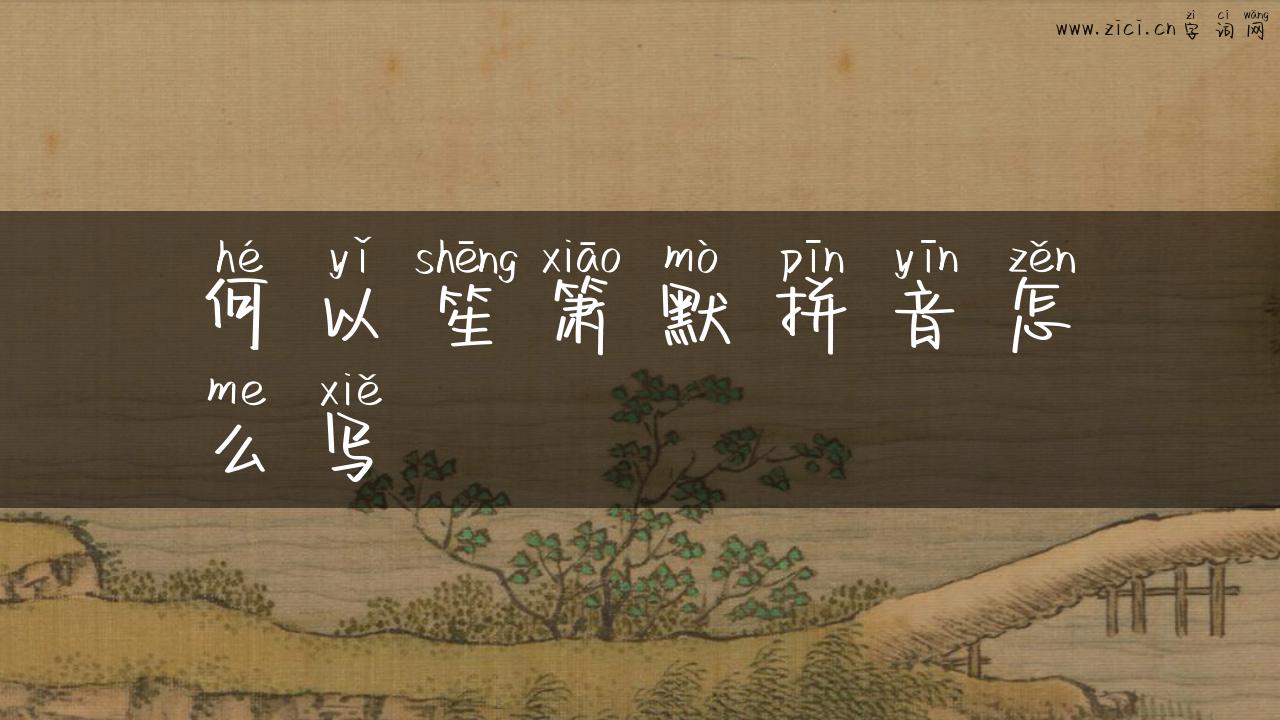 zì cí wǎng
www.zici.cn 字词网
hé yǐ shēng xiāo mò pīn yīn zěn
何以笙箫默拼音怎
me xiě
么写